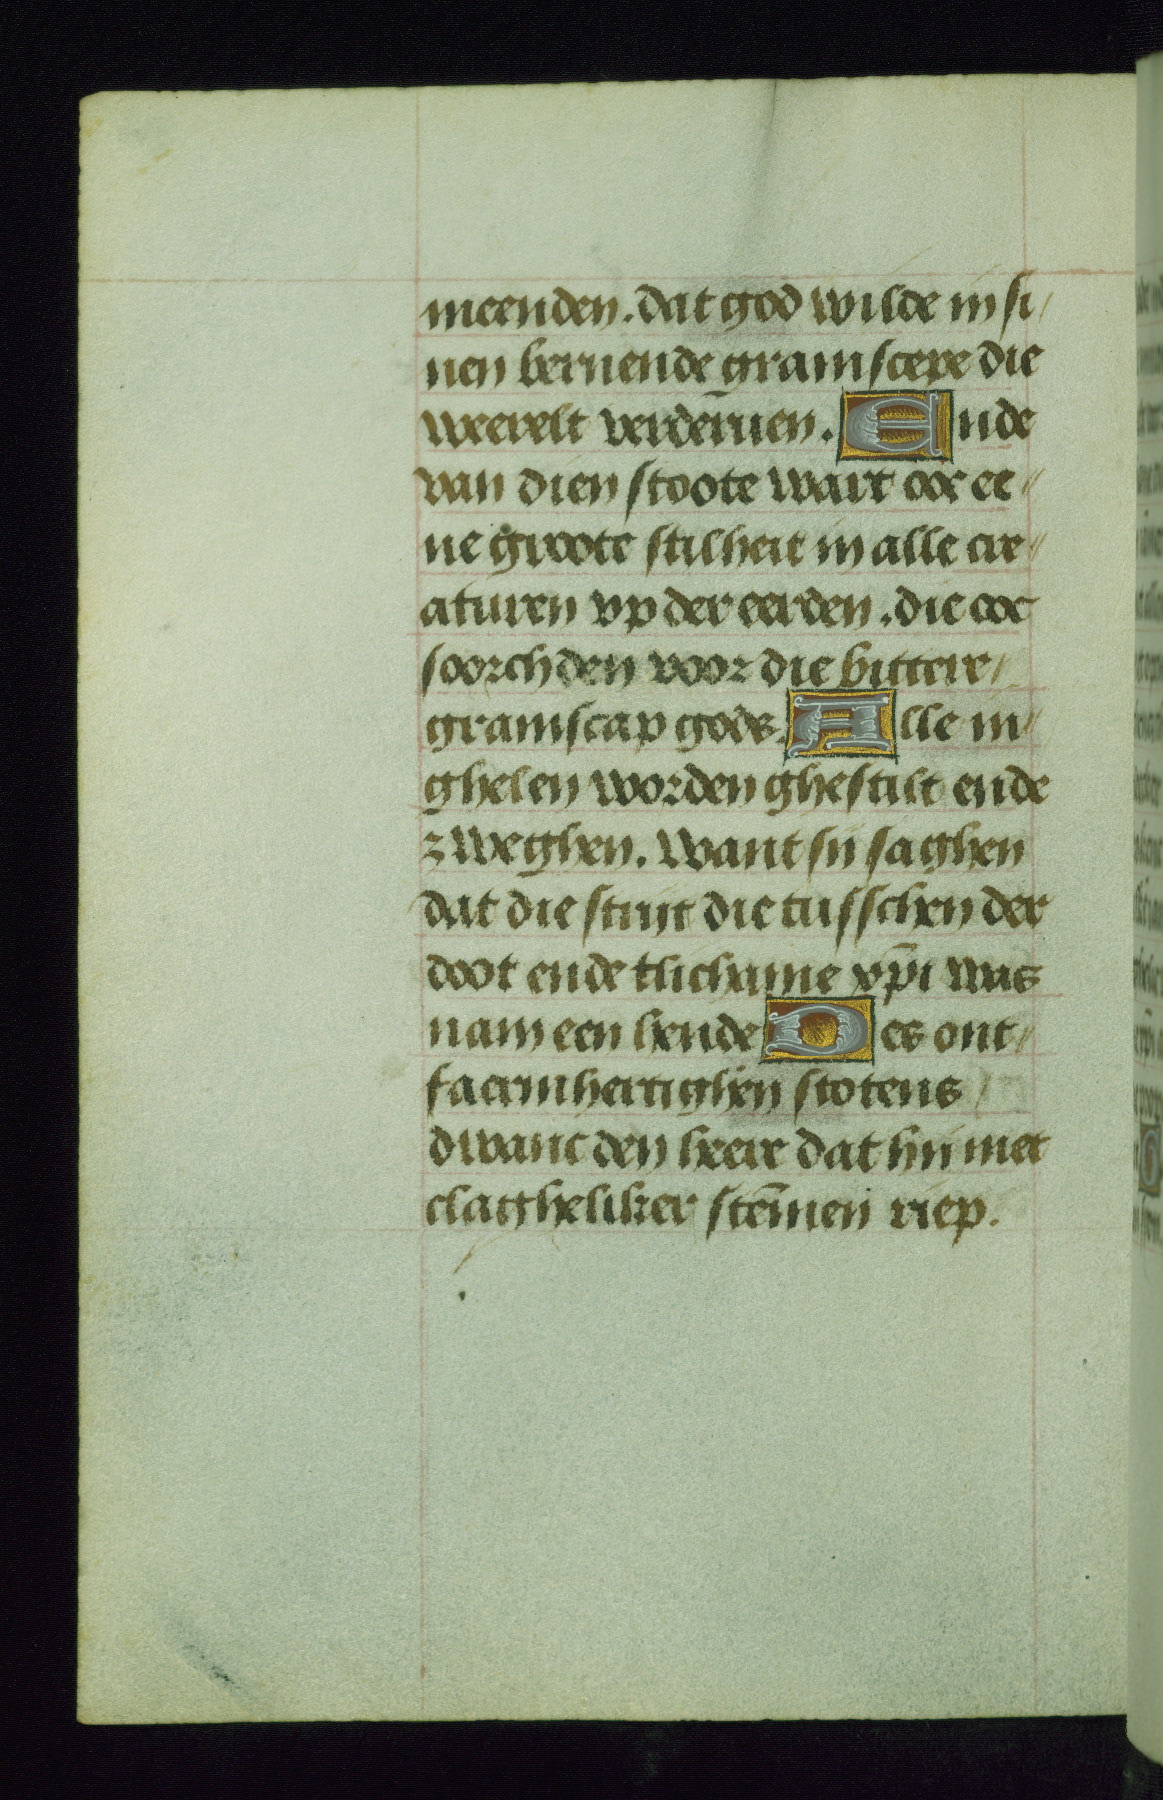 meenden. dat god wilde in si/
nen bernende gramscepe die
weerelt verdēruen. Ende
van dien stoote wart ooc ee//
ne groote stilheit in alle cre//
aturen vp der eerden. die ooc
soorchden voor die bittere/
gramscap gods. Alle in//
ghelen worden ghestilt ende
zweghen. Want sij saghen
dat die strijt die tusschen der
doot ende tlichame xp̄i was
nam een hende Des ont/
faermhertighen stotens
dwanc den heere dat hij met
clagheliker stēmen riep.